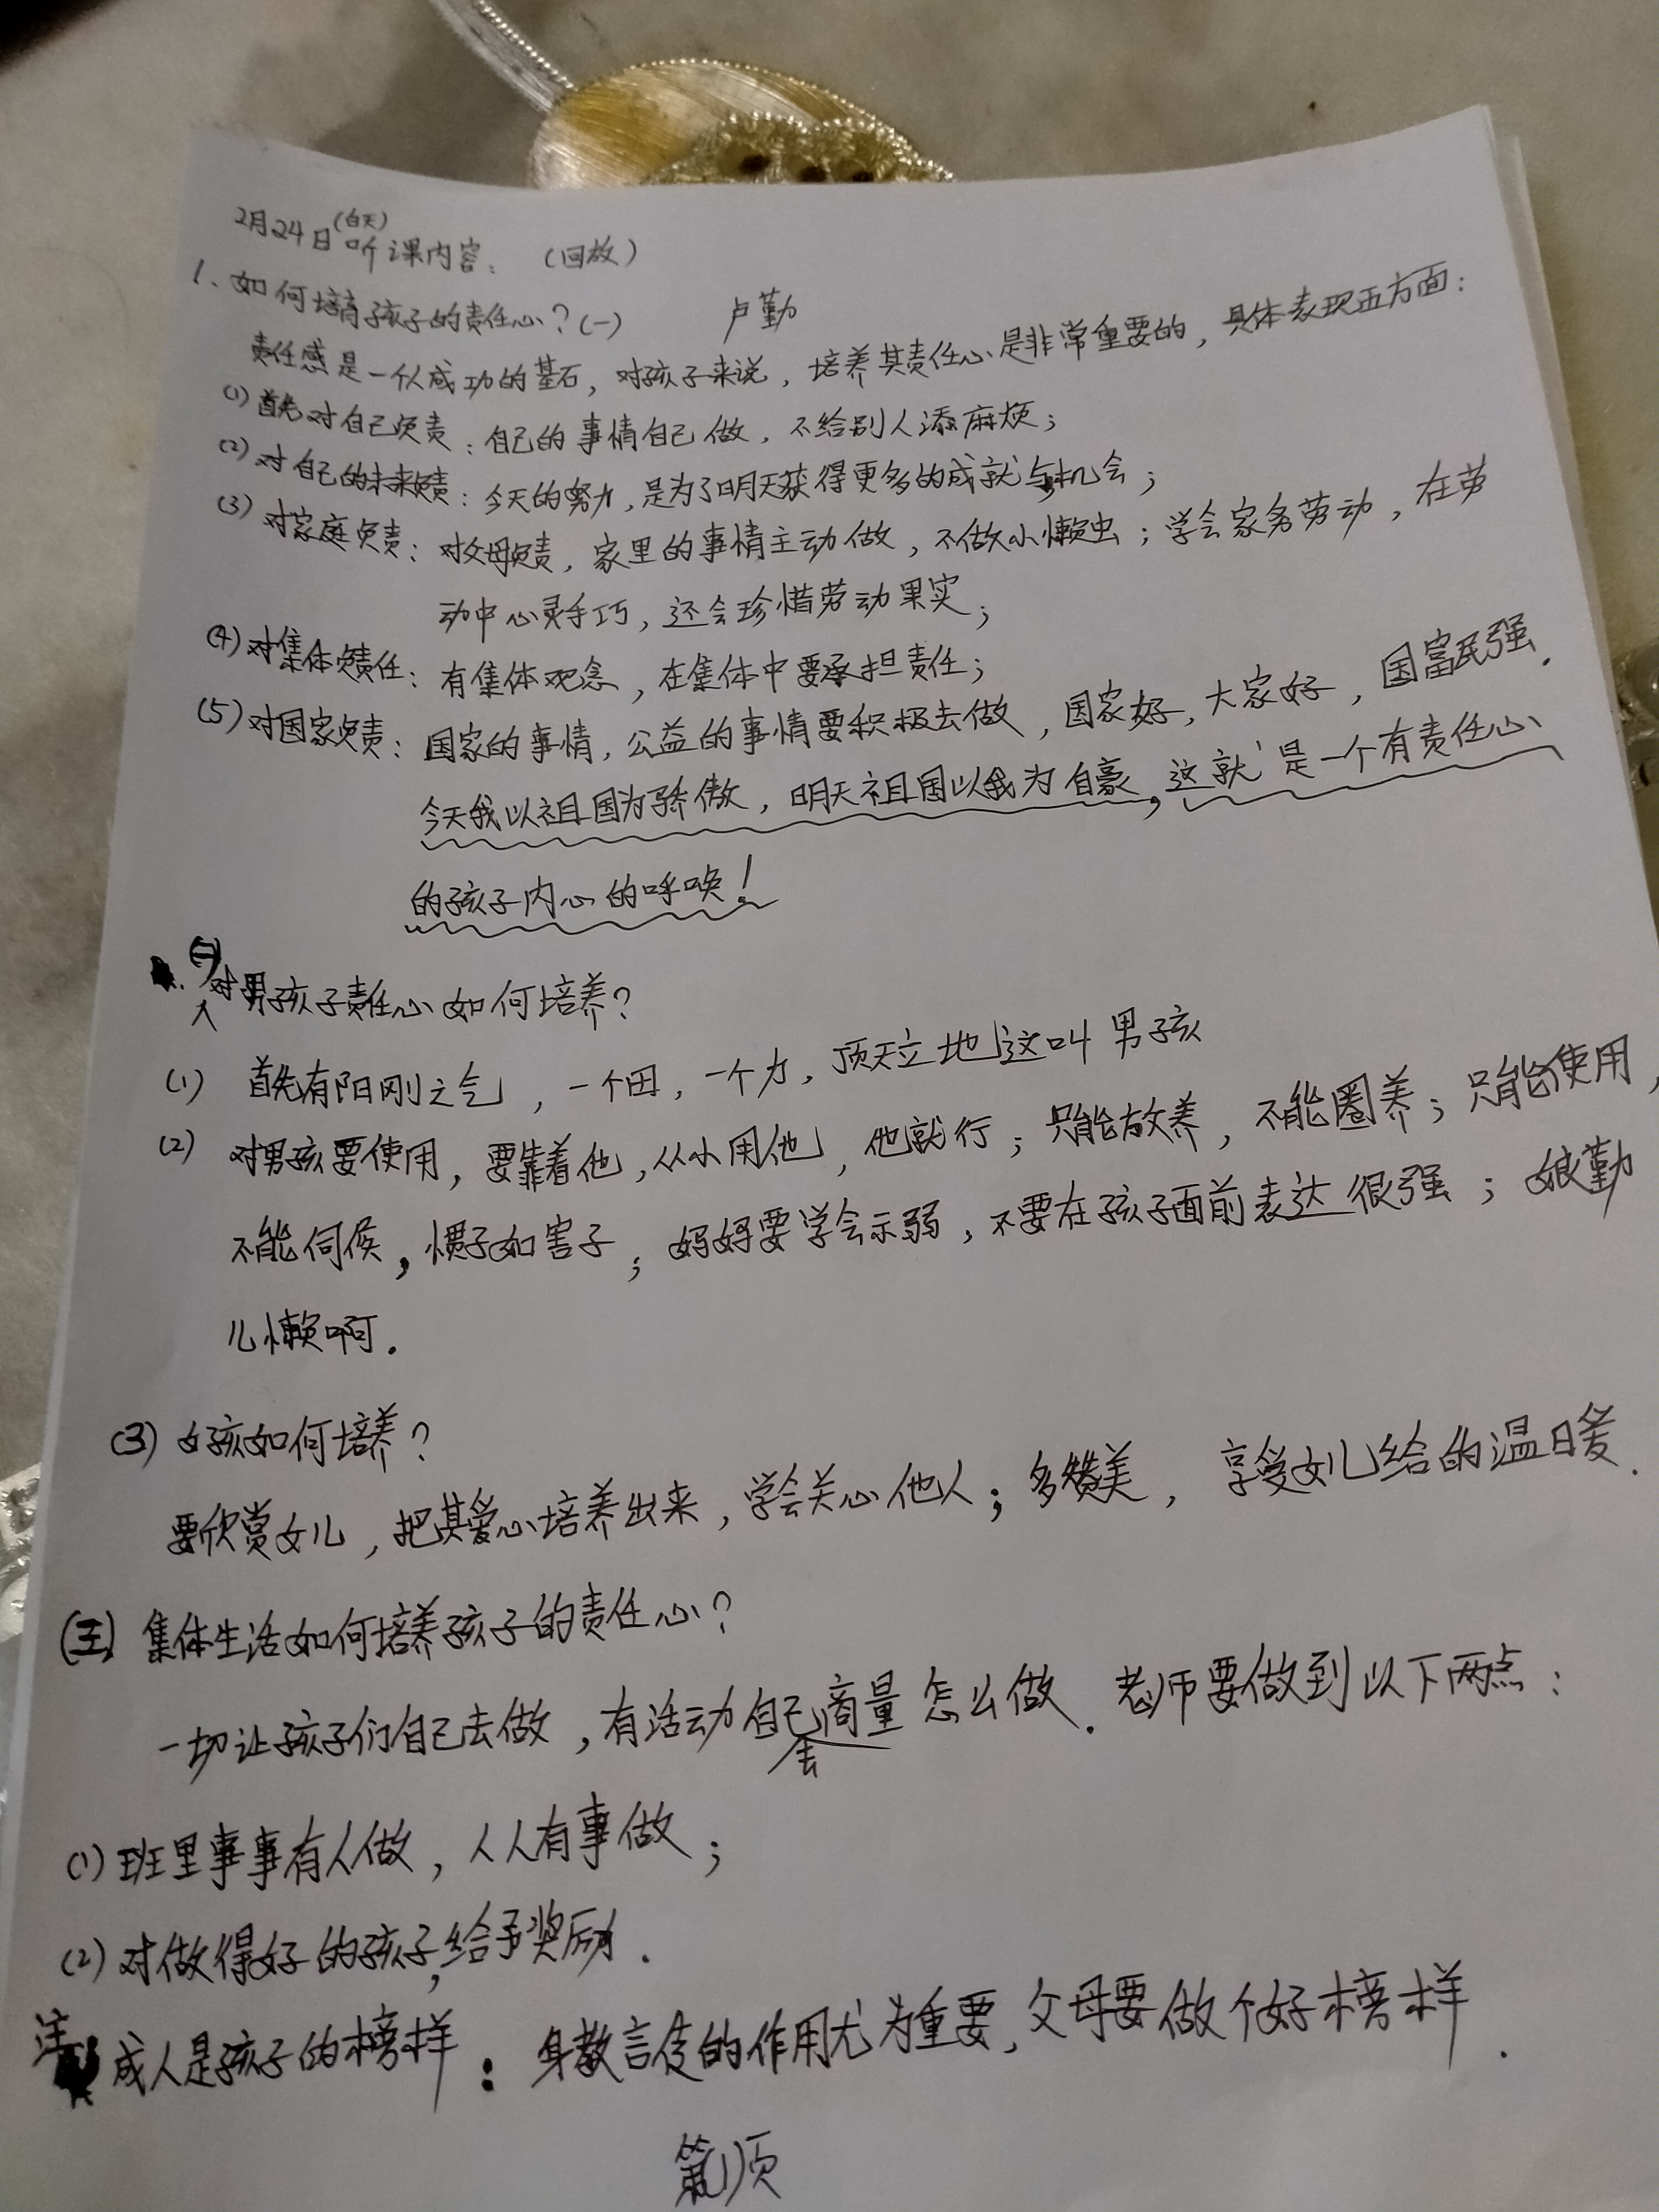 2月24日(白天)听课内容：（回放）
1、如何培育孩子的责任心？(一) 卢勤
责任感是一个人成功的基石，对孩子来说，培养其责任心是非常重要的，具体表现五方面：
(1) 首先对自己负责：自己的事情自己做，不给别人添麻烦；
(2) 对自己的未来负责：今天的努力，是为了明天获得更多的成就与机会；
(3) 对家庭负责：对父母负责，家里的事情主动做，不做小懒虫；学会家务劳动，在劳
动中心灵手巧，还会珍惜劳动果实；
(4) 对集体负责任：有集体观念，在集体中要承担责任；
(5) 对国家负责：国家的事情，公益的事情要积极去做，国家好，大家好，国富民强.
今天我以祖国为骄傲，明天祖国以我为自豪，这就是一个有责任心
的孩子内心的呼唤！
(二)对男孩子责任心如何培养？
(1) 首先有阳刚之气，一个田，一个力，顶天立地这叫男孩
(2) 对男孩要使用，要靠着他，从小用他，他就行；只能放养，不能圈养；只能使用，
不能伺候，惯子如害子；妈妈要学会示弱，不要在孩子面前表达很强；娘勤
儿懒啊.
(3) 女孩如何培养？
要欣赏女儿，把其爱心培养出来，学会关心他人；多赞美，享受女儿给的温暖.
(三) 集体生活如何培养孩子的责任心？
一切让孩子们自己去做，有活动自己去商量怎么做.老师要做到以下两点：
(1) 班里事事有人做，人人有事做；
(2) 对做得好的孩子，给予奖励.
注 成人是孩子的榜样：身教言传的作用尤为重要，父母要做个好榜样.
第(1)页